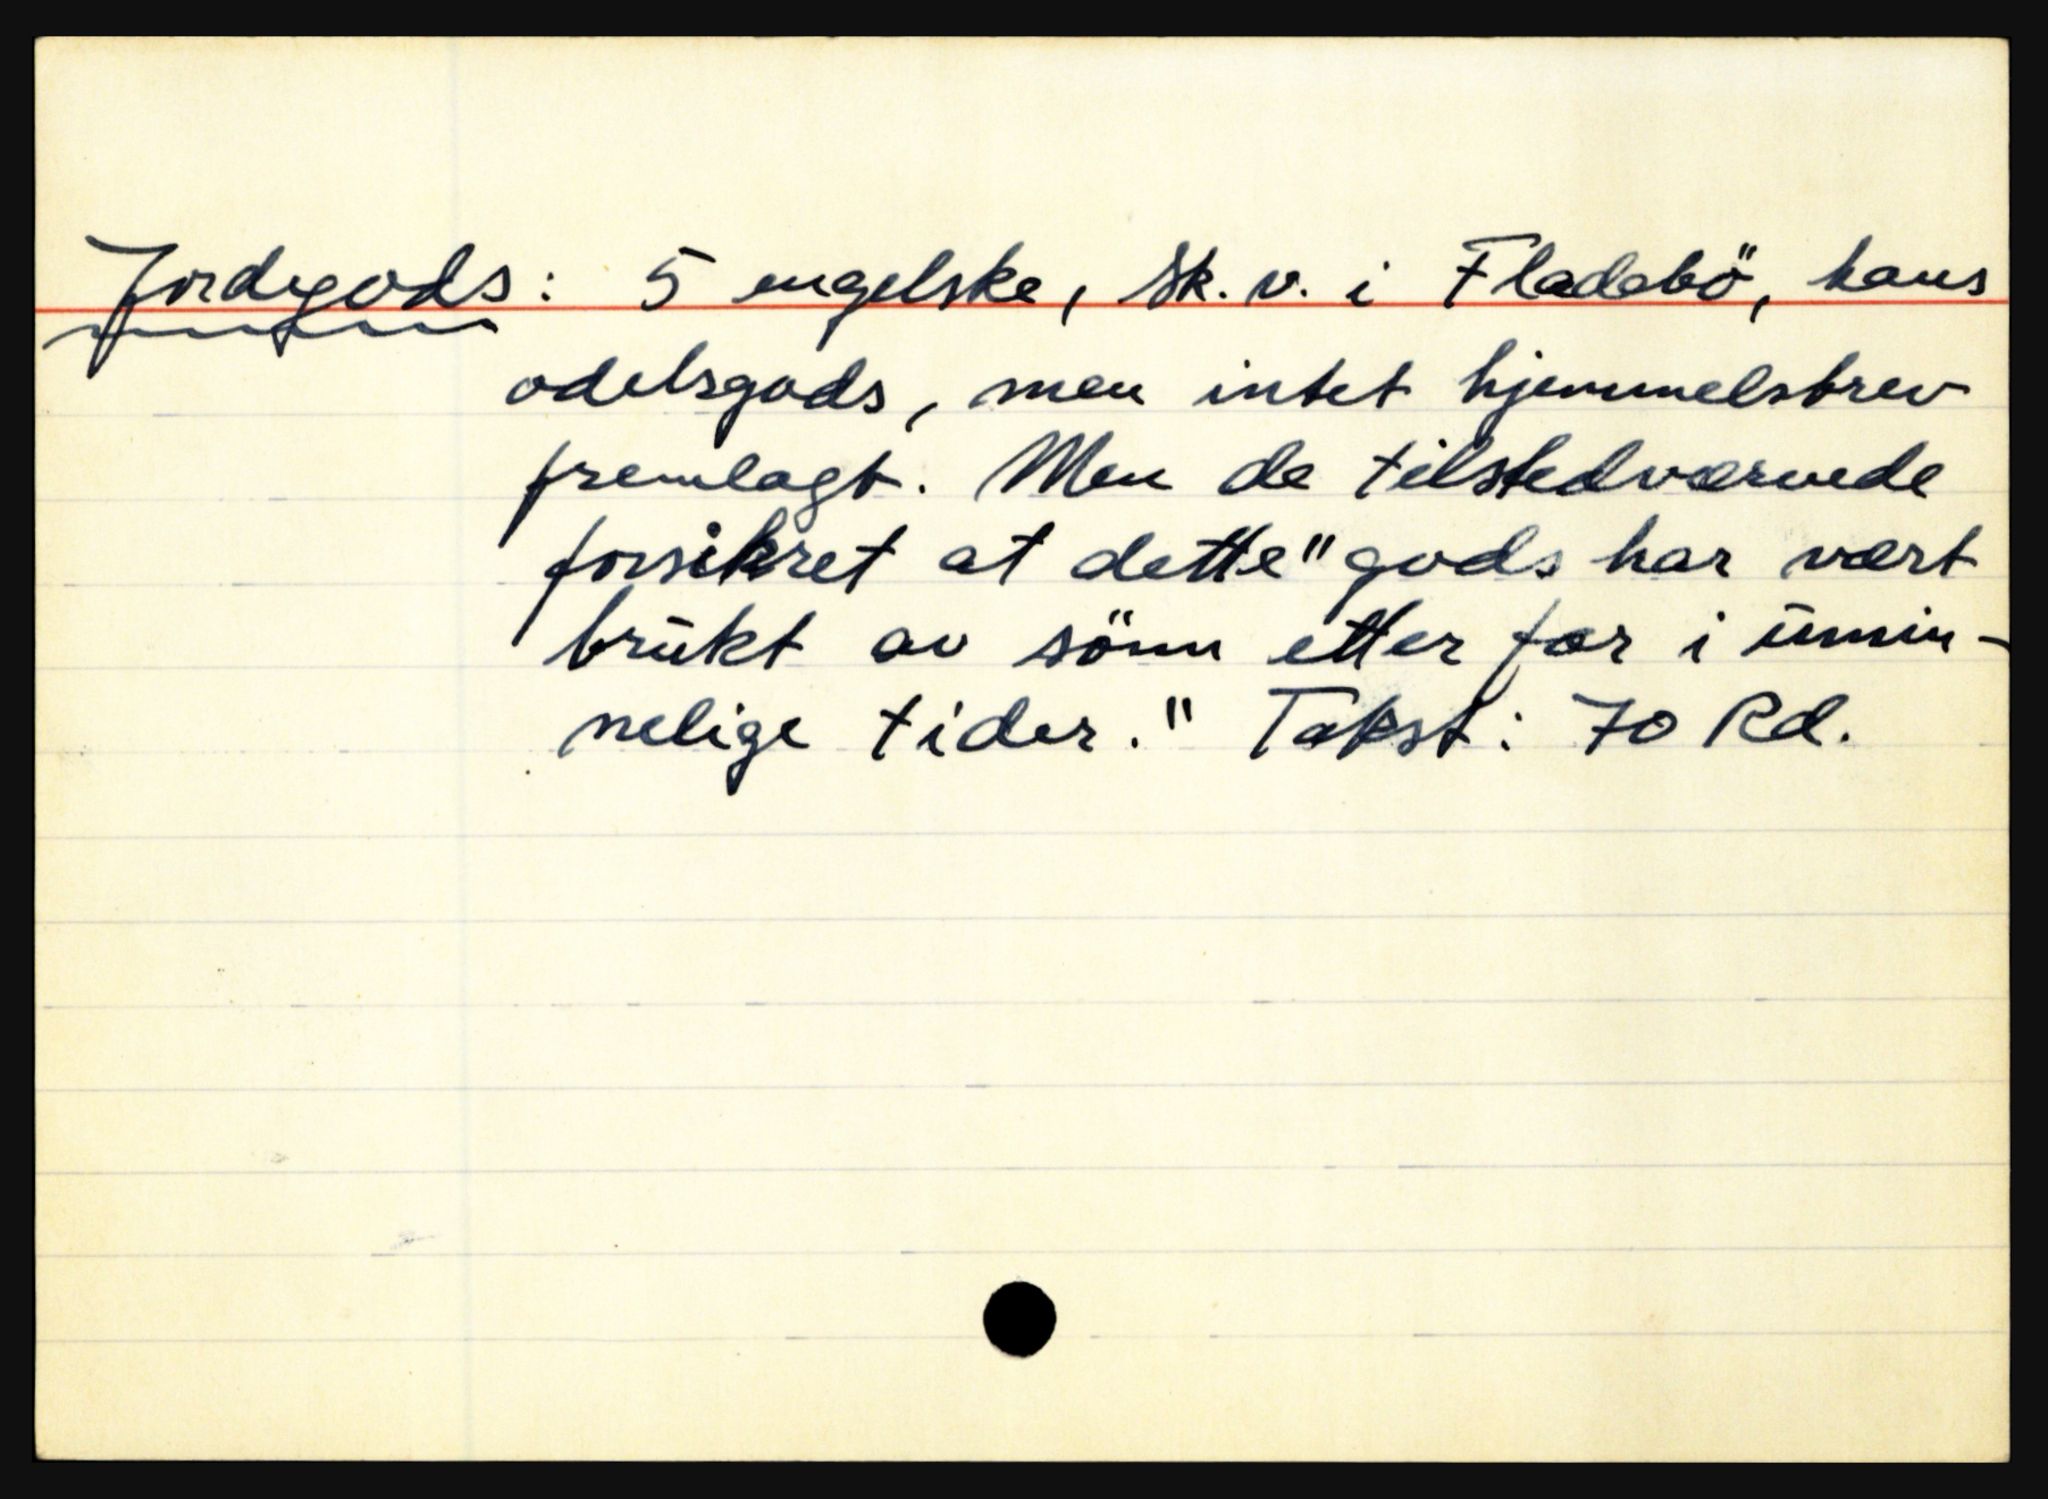 Jordegods: 5 engelske, sk. v. i Fladebö, hans
odelsgods, men intet hjemmelsbrev
fremlagt. Men de tilstedværende
forsikret at dette "gods har vært
brukt av sönn etter far i umin-
nelige tider." Takst: 70 Rd.